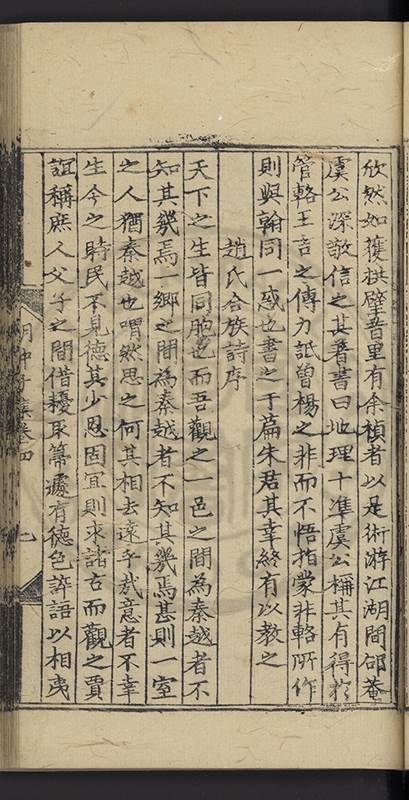 欣然如獲拱璧昔里有余楨者以是術游江湖間邵菴
虞公深敬信之其著書曰地理十準虞公稱其有得於
管輅王吉之傳力詆曾楊之非而不悟指蒙非輅所作
則與翰同一惑也書之于篇朱君其幸終有以教之
趙氏合族詩序
天下之生皆同胞也而吾觀之一邑之間為秦越者不
知其幾焉一鄉之間為秦越者不知其幾焉甚則一室
之人猶秦越也喟然思之何其相去遠乎哉意者不幸
生今之時民不見德其少恩固宜則求諸古而觀之賈
誼稱庶人父子之間借耰耡箒遽有德色誶語以相夷
卷四